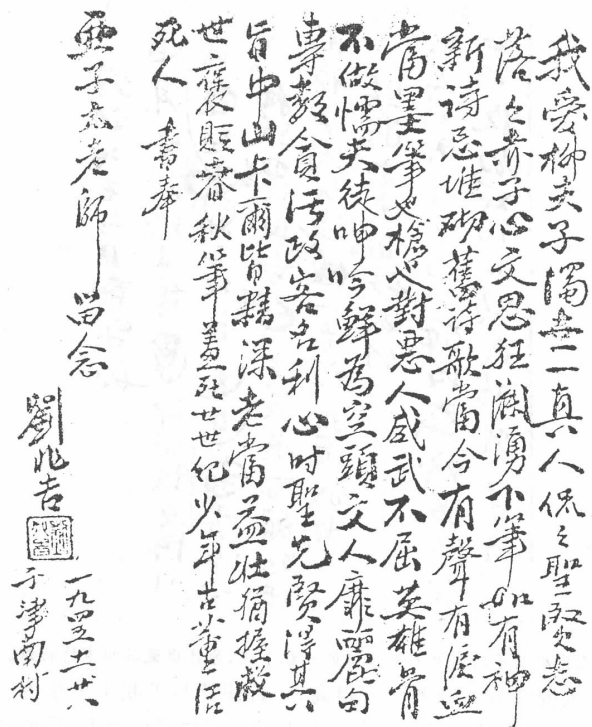 我愛柳夫子濁世一真人侃々聖賢志
落々赤子心文思狂瀾湧下筆如有神
新詩忌堆砌舊詩歌當今有聲有淚血
當墨筆也槍也對惡人威武不屈英雄骨
不做懦夫徒呻吟鮮為空頭文人靡麗句
專教貪污政客名利心時聖先賢得其
旨中山卡爾皆精深老當益壯猶握救
世褒貶春秋筆羞死廿世紀少年古董活
死人 書奉
亞子太老師 留念
劉兆吉
一九四五十一廿八
于津南村